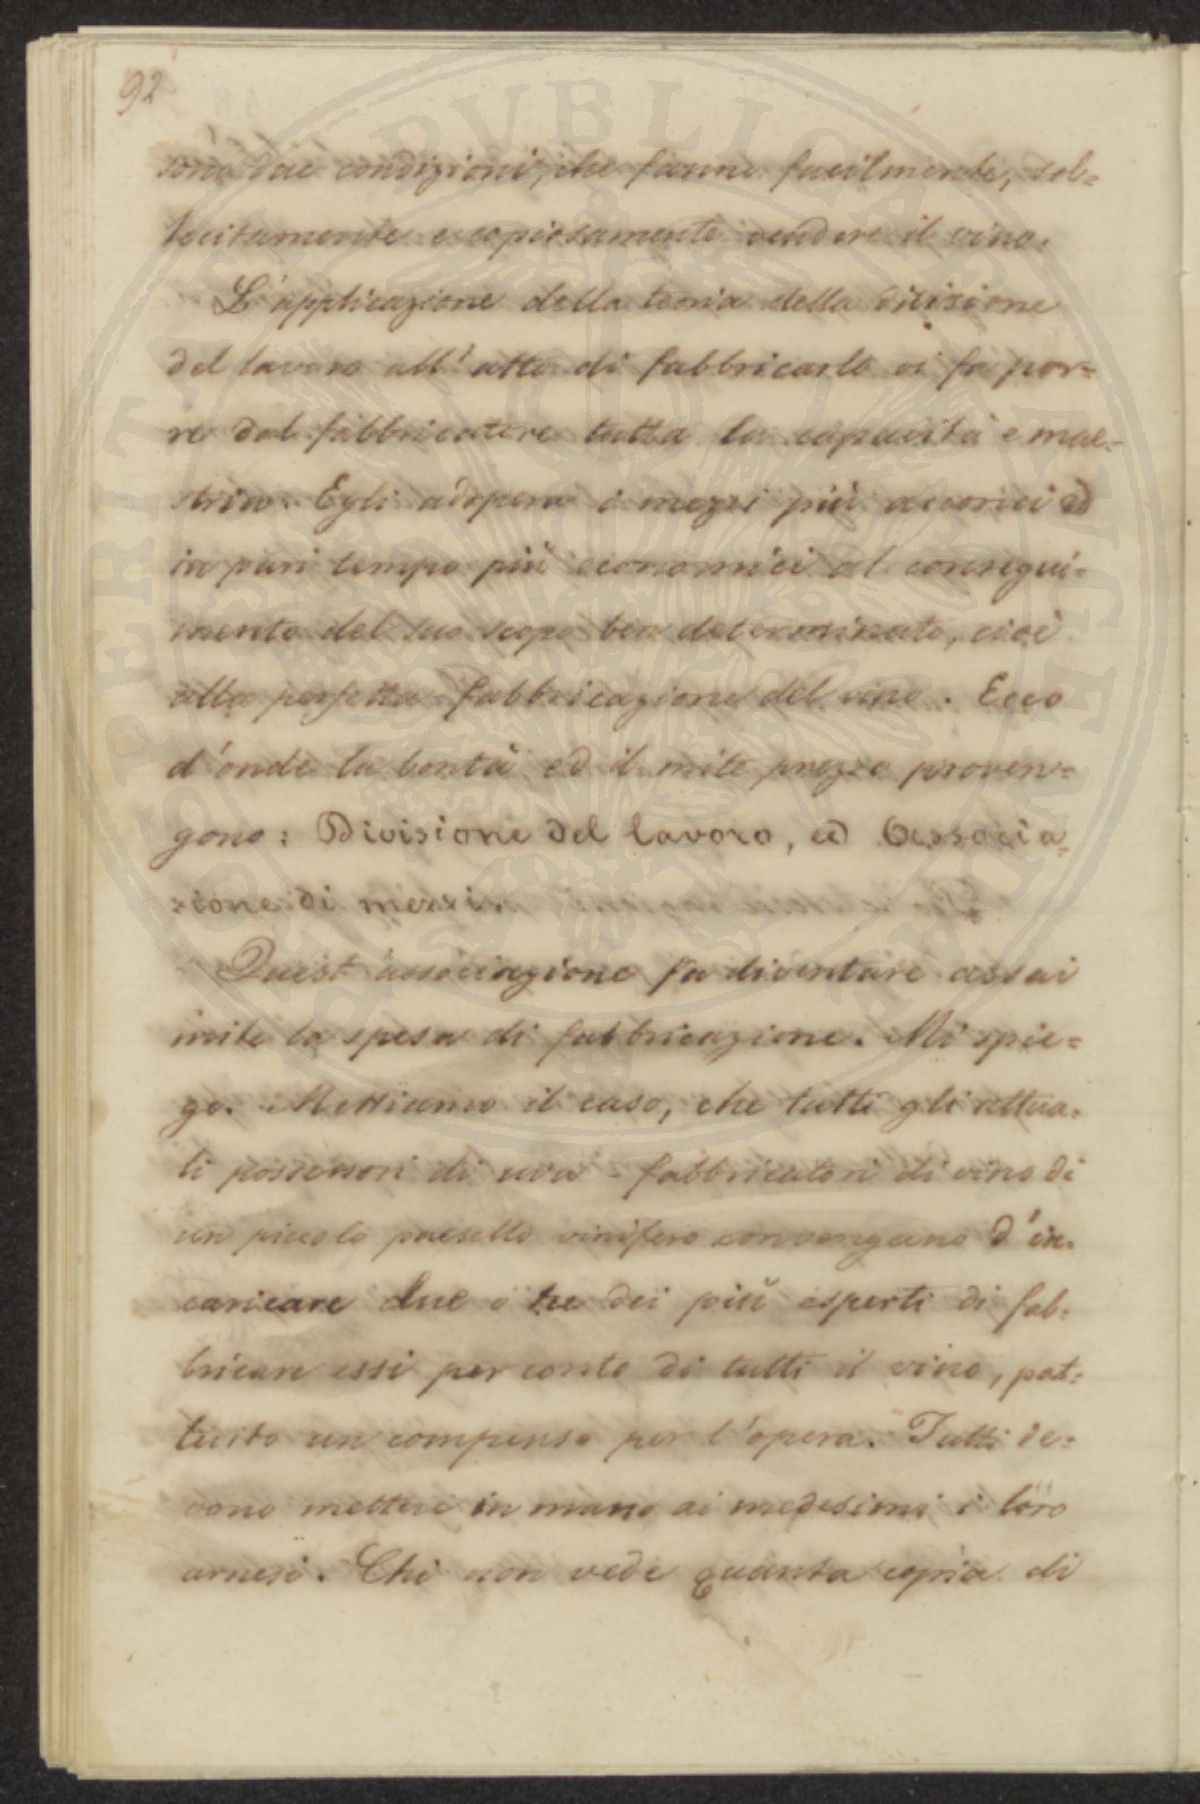 92
sono due condizioni, che fanno facilmente, sol-
lecitamente e copiosamente vendere il vino.
L'applicazione della teoria della divisione
del lavoro all'atto di fabbricarlo vi fa por-
re dal fabbricatore tutta la capacità e mae-
stria. Egli adopera i mezzi più acconci ed
in pari tempo più economici al consegui-
mento del suo scopo ben determinato, cioè
alla perfetta fabbricazione del vino. Ecco
d'onde la bontà ed il mite prezzo proven-
gono: Divisione del lavoro, ed Associa-
zione di mezzi.
Quest'associazione fa diventare assai
mite la spesa di fabbricazione. Mi spie-
go. Mettiamo il caso, che tutti gli attua-
li possessori di uva - fabbricatori di vino di
un piccolo paesello vinifero convengano d'in-
caricare due o tre dei più esperti di fab-
bricare essi per conto di tutti il vino, pat-
tuito un compenso per l'opera. Tutti de-
vono mettere in mano ai medesimi i loro
arnesi. Chi non vede quanta copia di